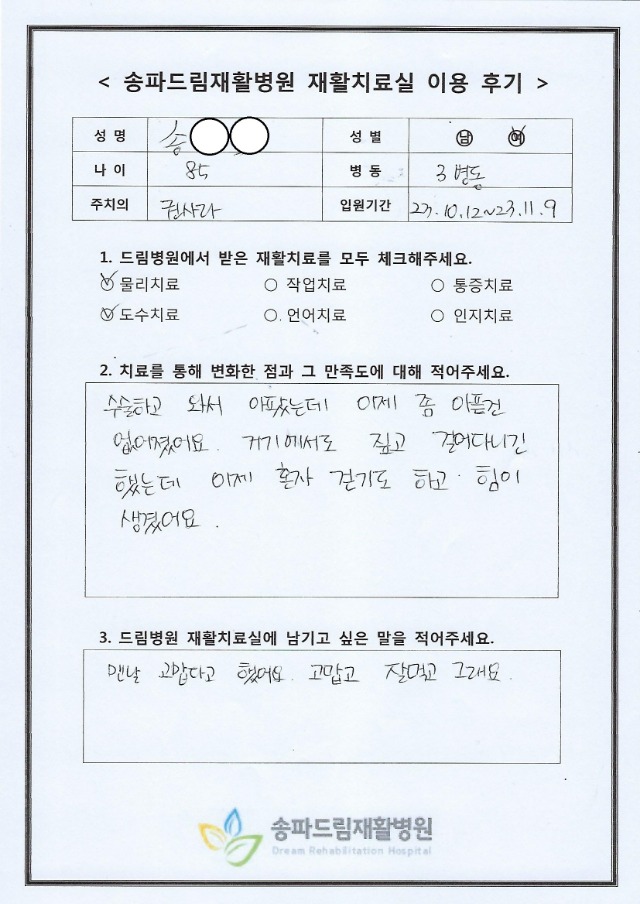 < 송파드림재활병원 재활치료실 이용 후기 >
성 명 송 성 별 남 여
나 이 85 병 동 3병동
주치의 권사라 입원기간 23.10.12~23.11.9
1. 드림병원에서 받은 재활치료를 모두 체크해주세요.
물리치료 작업치료 통증치료
도수치료 언어치료 인지치료
2. 치료를 통해 변화한 점과 그 만족도에 대해 적어주세요.
수술하고 와서 아팠는데 이제 좀 아픈건
없어졌어요. 거기에서도 짚고 걸어다니긴
했는데 이제 혼자 걷기도 하고 힘이
생겼어요.
3. 드림병원 재활치료실에 남기고 싶은 말을 적어주세요.
맨날 고맙다고 했어요. 고맙고 잘먹고 그래요.
송파드림재활병원
Dream Rehabilitation Hospital